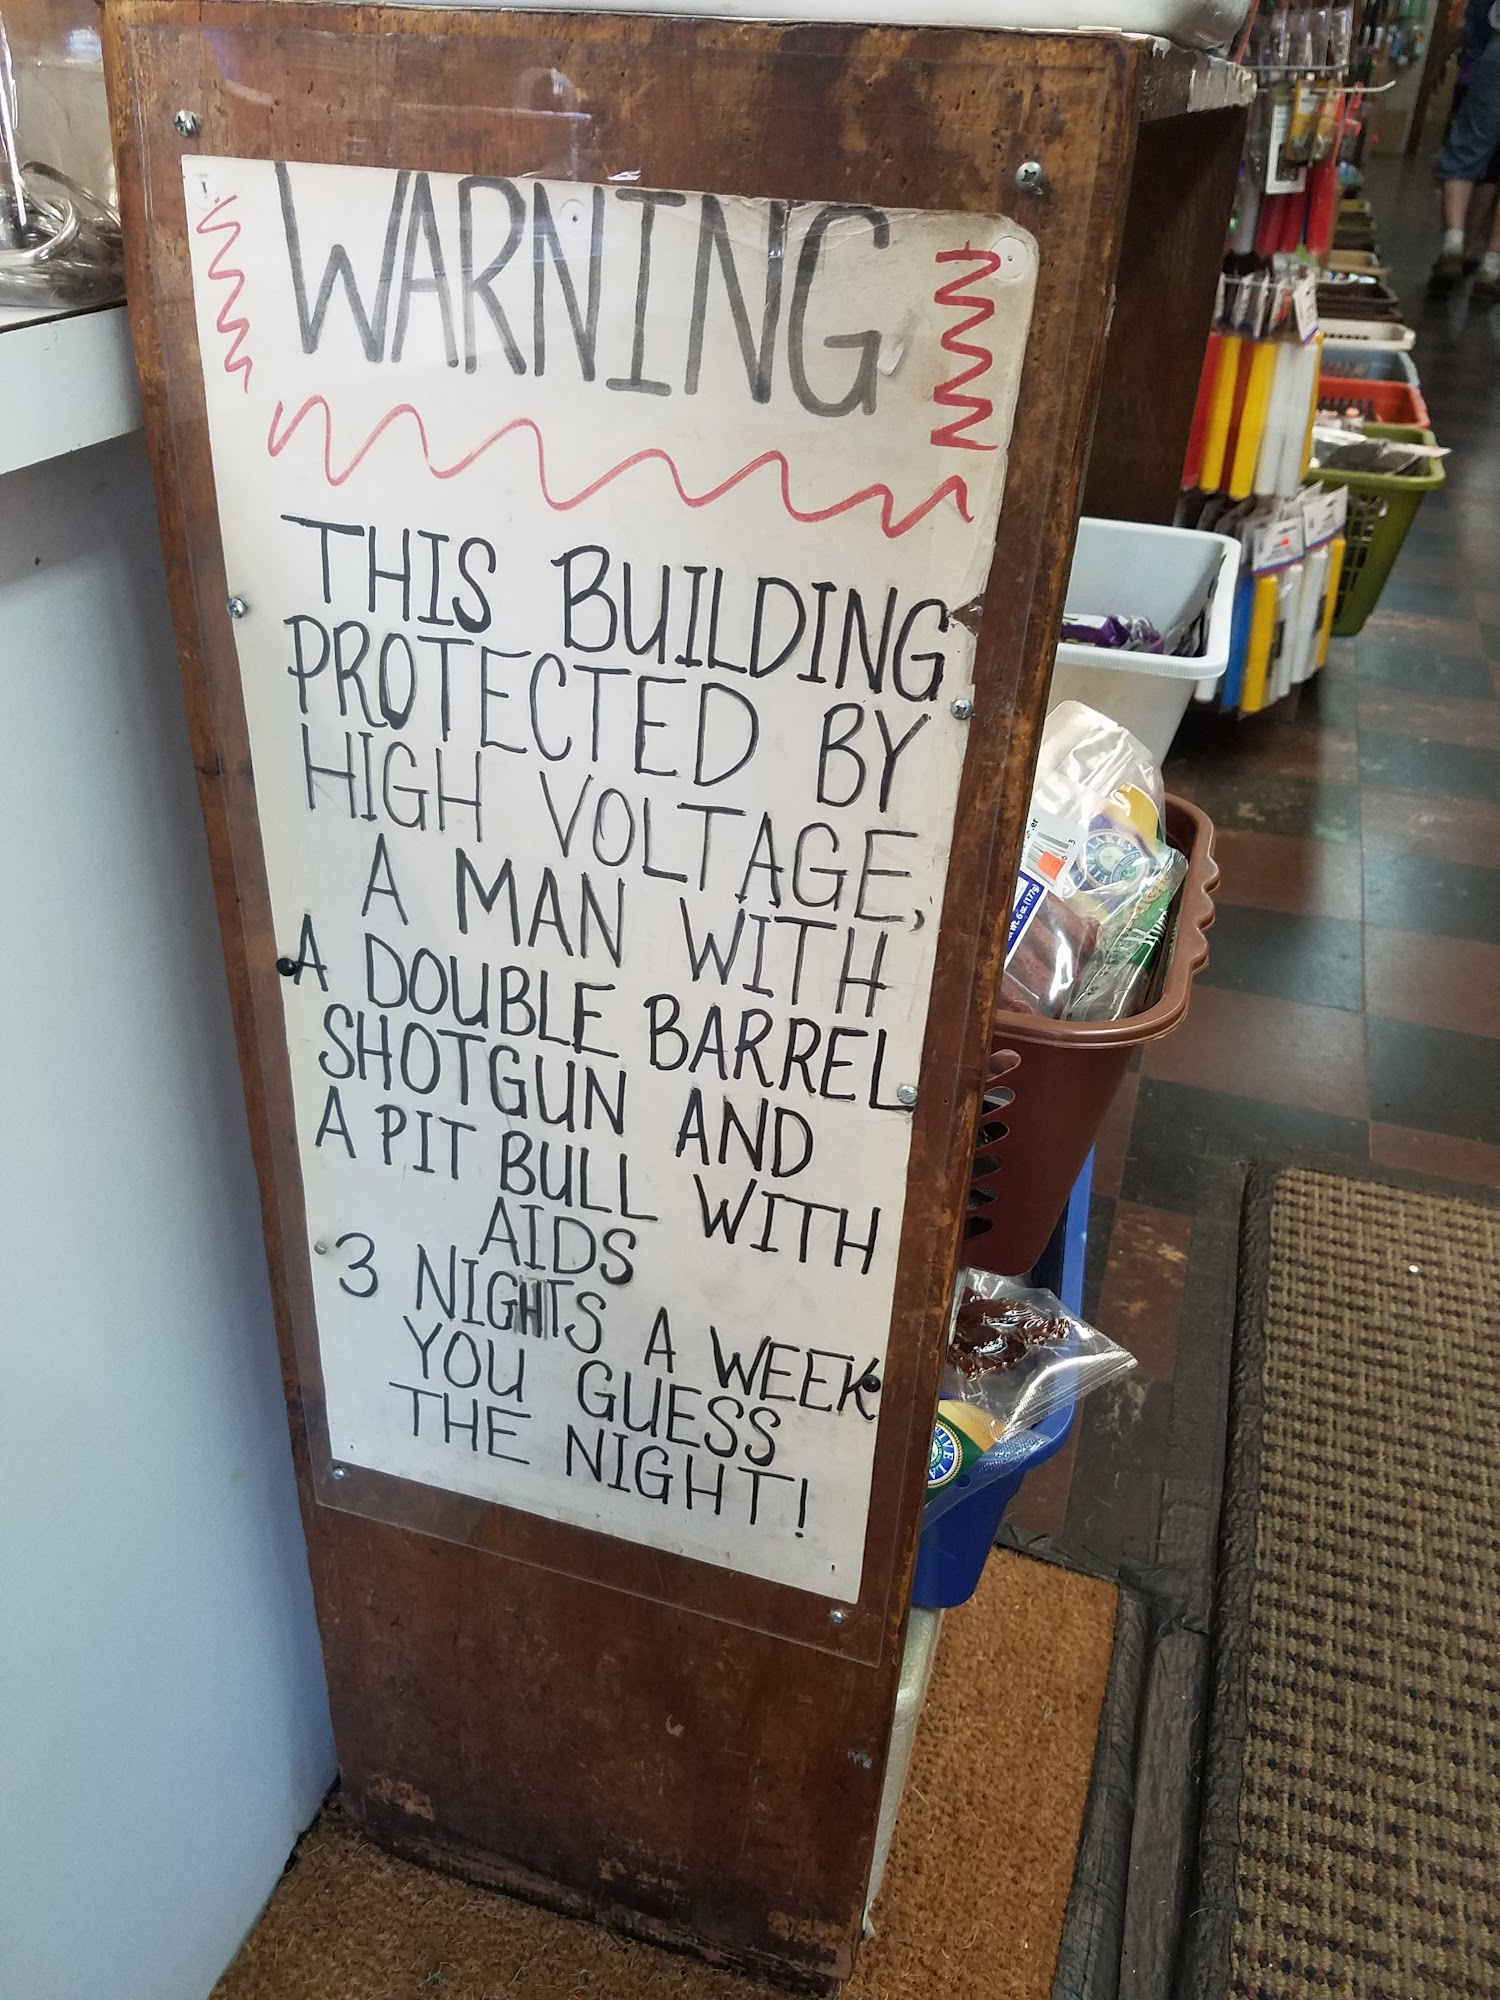 WARNING
THIS BUILDING
PROTECTED BY
HIGH VOLTAGE,
A MAN WITH
A DOUBLE BARREL
SHOTGUN AND
A PIT BULL WITH
AIDS
3 NIGHTS A WEEK
YOU GUESS
THE NIGHT!